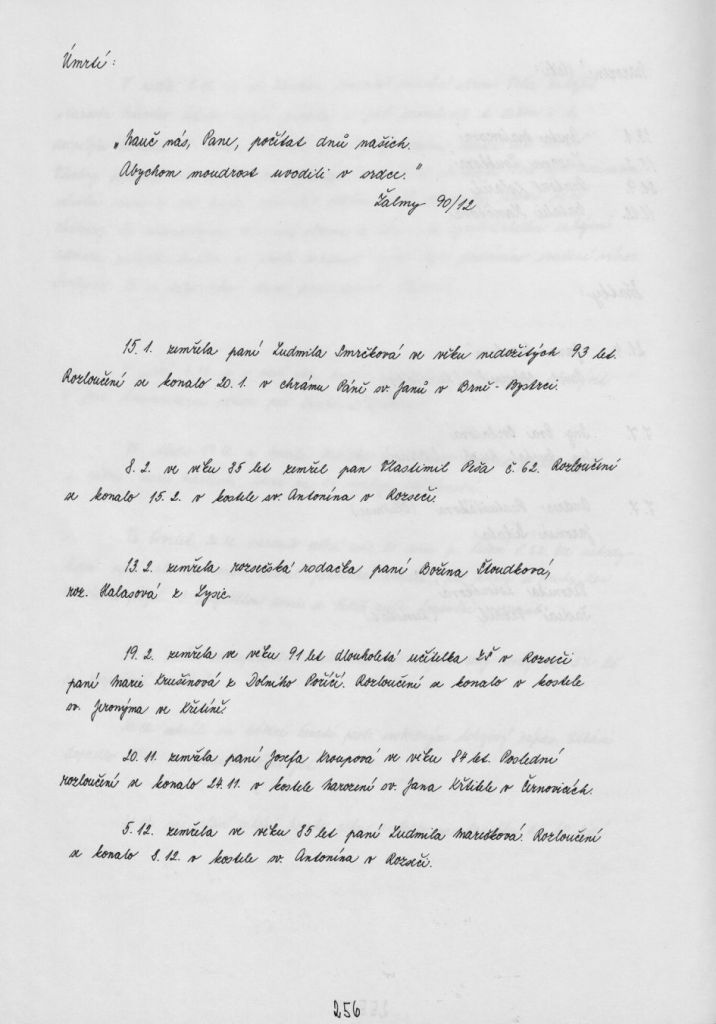 Úmrtí:
„Nauč nás, Pane, počítat dnů našich.
Abychom moudrost uvodili v srdce."
Žalmy 90/12
15.1. zemřela paní Ludmila Smrčková ve věku nedožitých 93 let.
Rozloučení se konalo 20.1. v chrámu Páně sv. Janů v Brně - Bystrci.
8.2. ve věku 85 let zemřel pan Vlastimil Peša č. 62. Rozloučení
se konalo 15.2. v kostele sv. Antonína v Rozseči.
13.2. zemřela rozsečská rodačka paní Božena Stoudková,
roz. Halasová z Lysic.
19.2. zemřela ve věku 91 let dlouholetá učitelka ZŠ v Rozseči
paní Marie Krušinová z Dolního Poříčí. Rozloučení se konalo v kostele
sv. Jeronýma ve Křetíně.
20.11. zemřela paní Josefa Kroupová ve věku 84 let. Poslední
rozloučení se konalo 24.11. v kostele Narození sv. Jana Křtitele v Černovicích.
5.12. zemřela ve věku 85 let paní Ludmila Marečková. Rozloučení
se konalo 8.12. v kostele sv. Antonína v Rozseči.
256